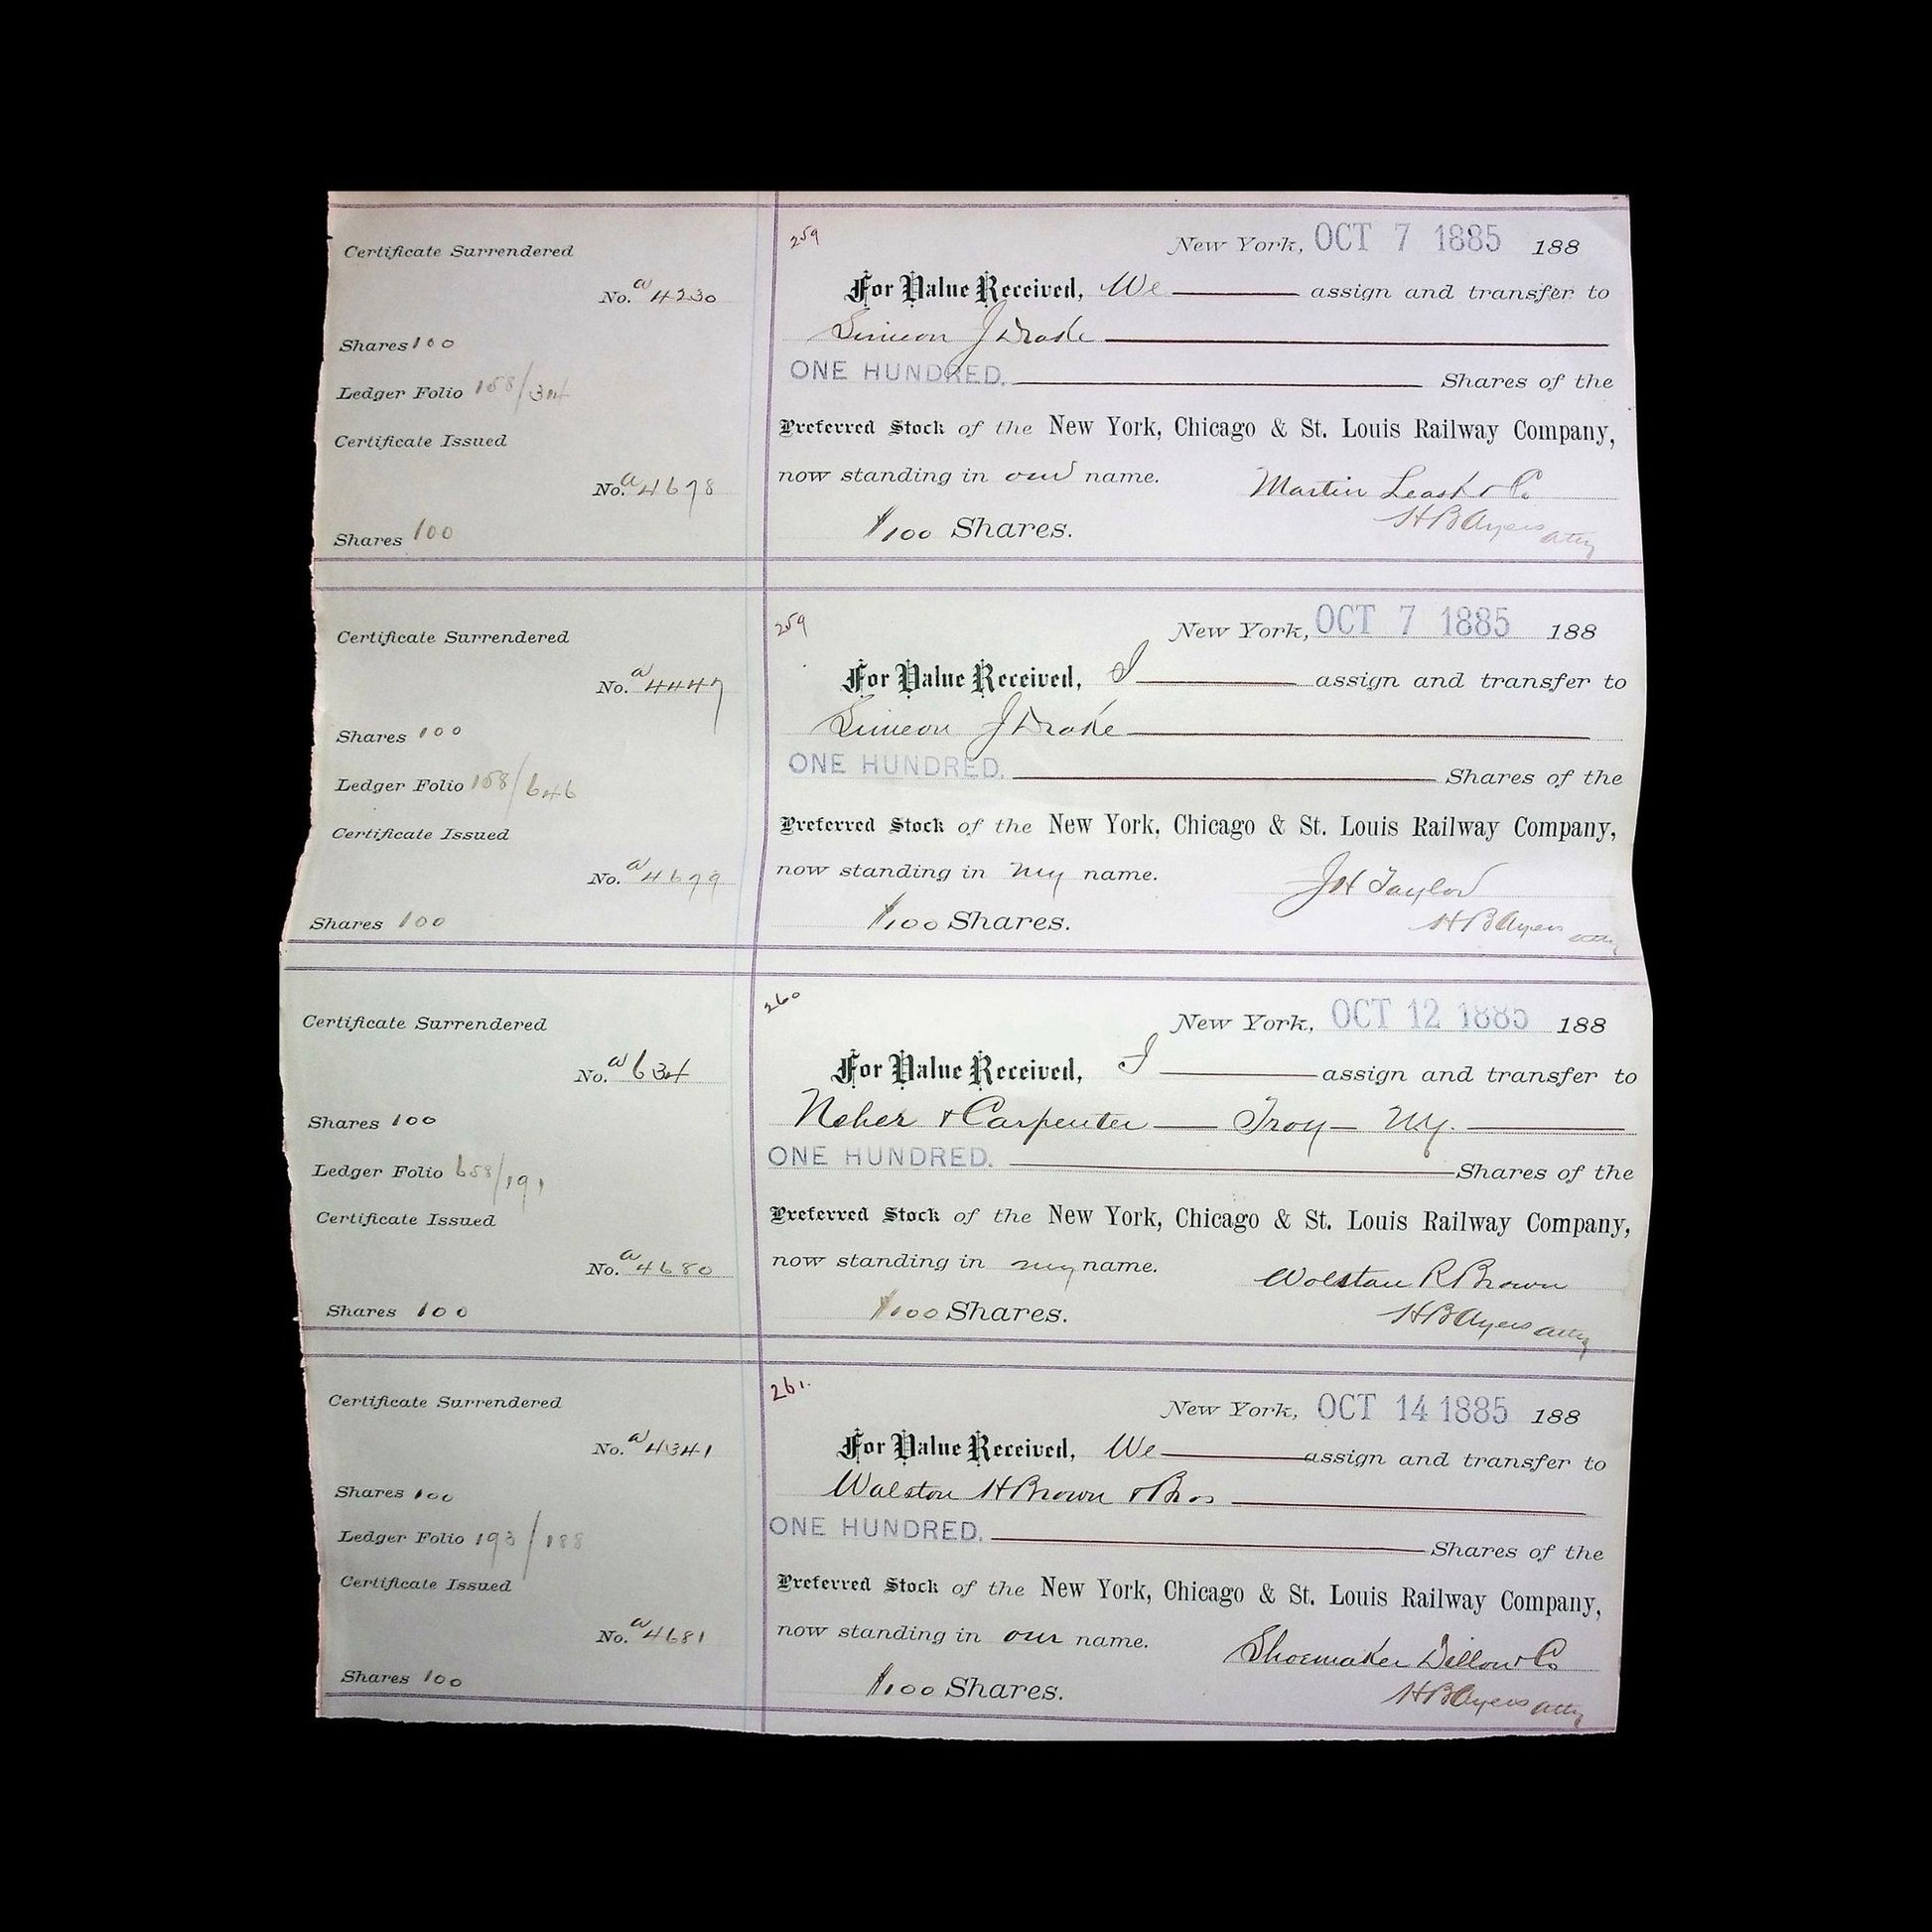 Certificate Surrendered
No. a 4230
Shares 100
Ledger Folio 158/34
Certificate Issued
No. a 4678
Shares 100
259
New York, OCT 7 1885 188
For Value Received, We assign and transfer to
Simeon J Drake
ONE HUNDRED. Shares of the
Preferred Stock of the New York, Chicago & St. Louis Railway Company,
now standing in our name. Martin & Co
$100 Shares. H B Ayers atty
Certificate Surrendered
No. a 4447
Shares 100
Ledger Folio 158/646
Certificate Issued
No. a 4679
Shares 100
259
New York, OCT 7 1885 188
For Value Received, I assign and transfer to
Simeon J Drake
ONE HUNDRED. Shares of the
Preferred Stock of the New York, Chicago & St. Louis Railway Company,
now standing in my name. J H Taylor
$100 Shares. H B Ayers atty
Certificate Surrendered
No. a 634
Shares 100
Ledger Folio 658/191
Certificate Issued
No. a 4680
Shares 100
260
New York, OCT 12 1885 188
For Value Received, I assign and transfer to
Neher & Carpenter — Troy — NY.
ONE HUNDRED. Shares of the
Preferred Stock of the New York, Chicago & St. Louis Railway Company,
now standing in my name. Wolstan R Brown
$100 Shares. H B Ayers atty
Certificate Surrendered
No. a 4341
Shares 100
Ledger Folio 193/188
Certificate Issued
No. a 4681
Shares 100
261.
New York, OCT 14 1885 188
For Value Received, We assign and transfer to
Walston H Brown & Bros
ONE HUNDRED. Shares of the
Preferred Stock of the New York, Chicago & St. Louis Railway Company,
now standing in our name. Shoemaker Dillon & Co
$100 Shares. H B Ayers atty